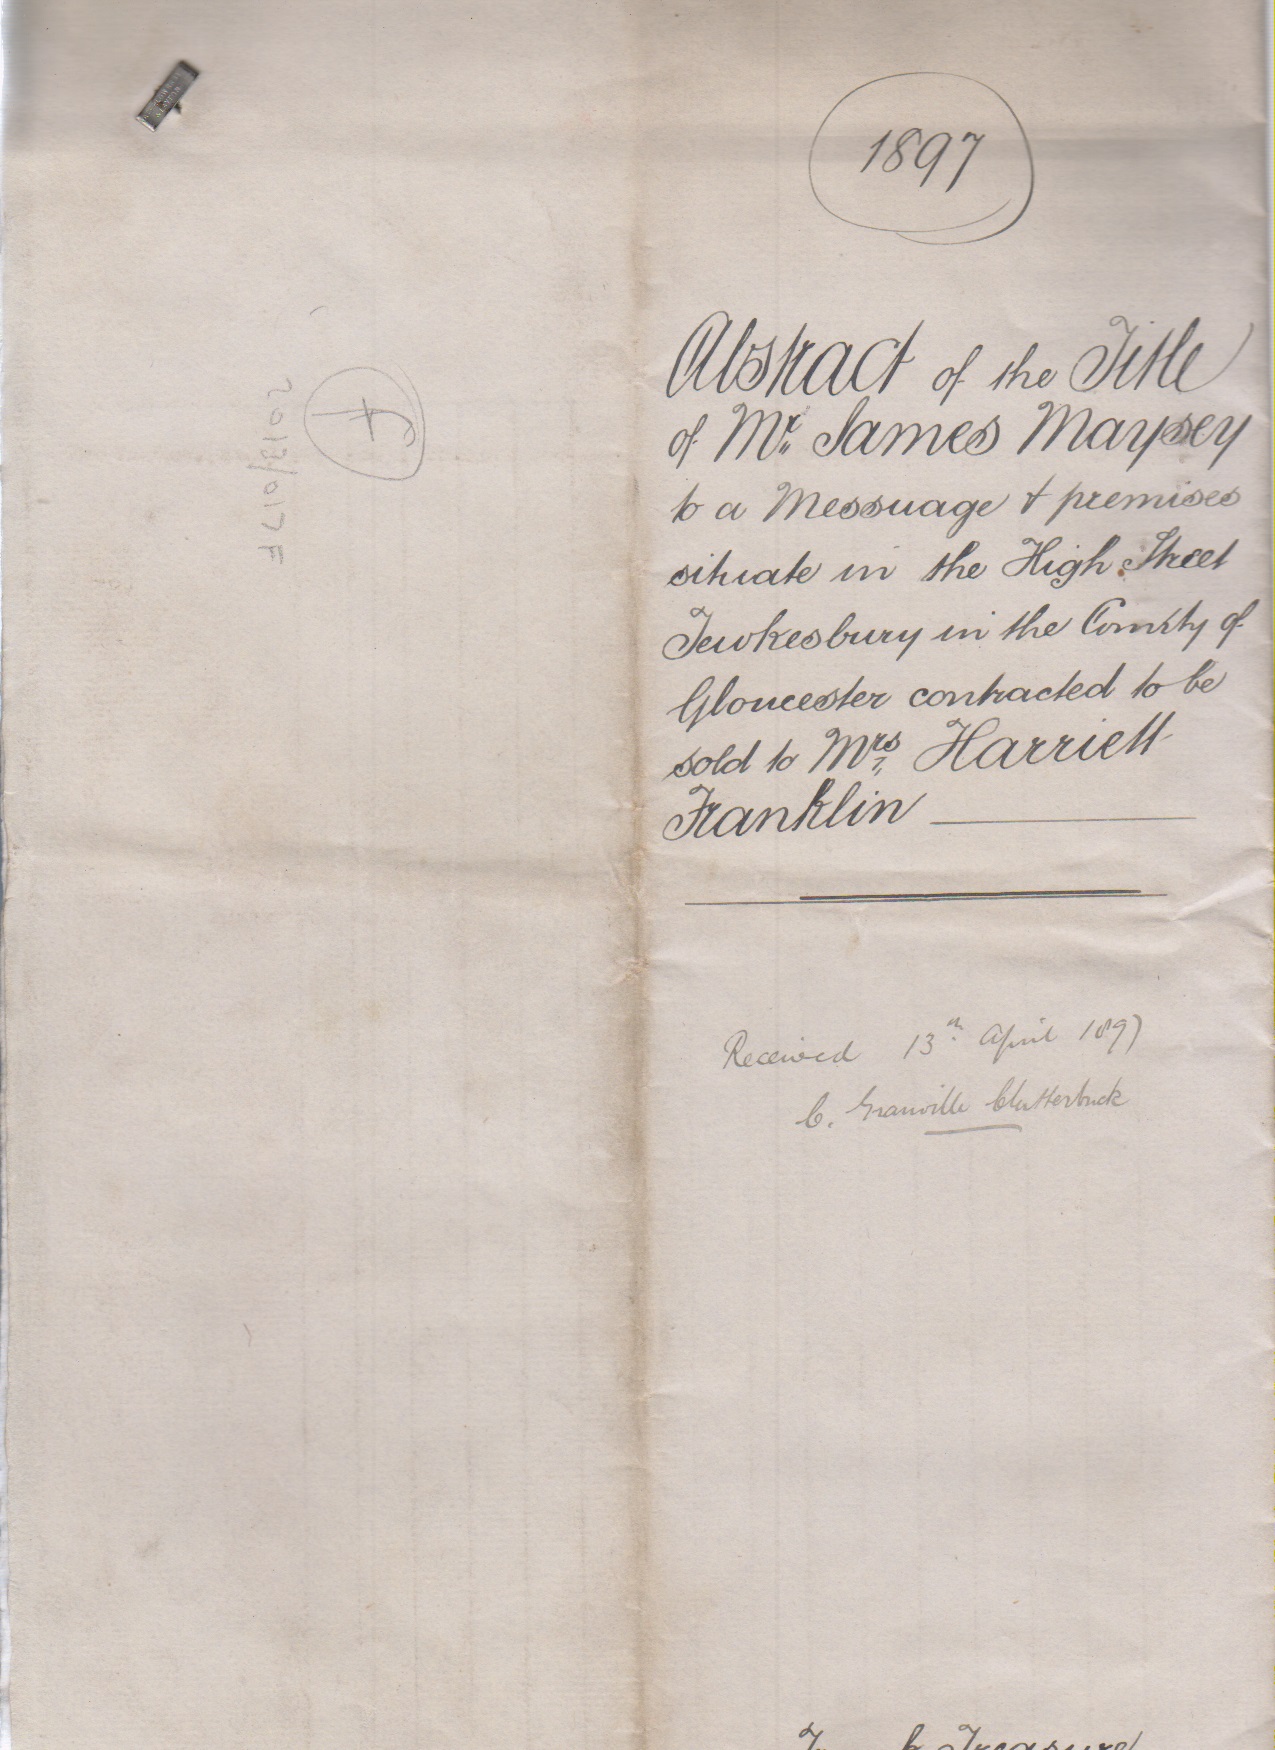 1897
Abstract of the Title
of Mr. James Maysey
to a Messuage & premises
situate in the High Street
Tewkesbury in the County of
Gloucester contracted to be
sold to Mrs. Harriett
Franklin
Received 13th April 1897
C. Granville Clutterbuck
Treasure